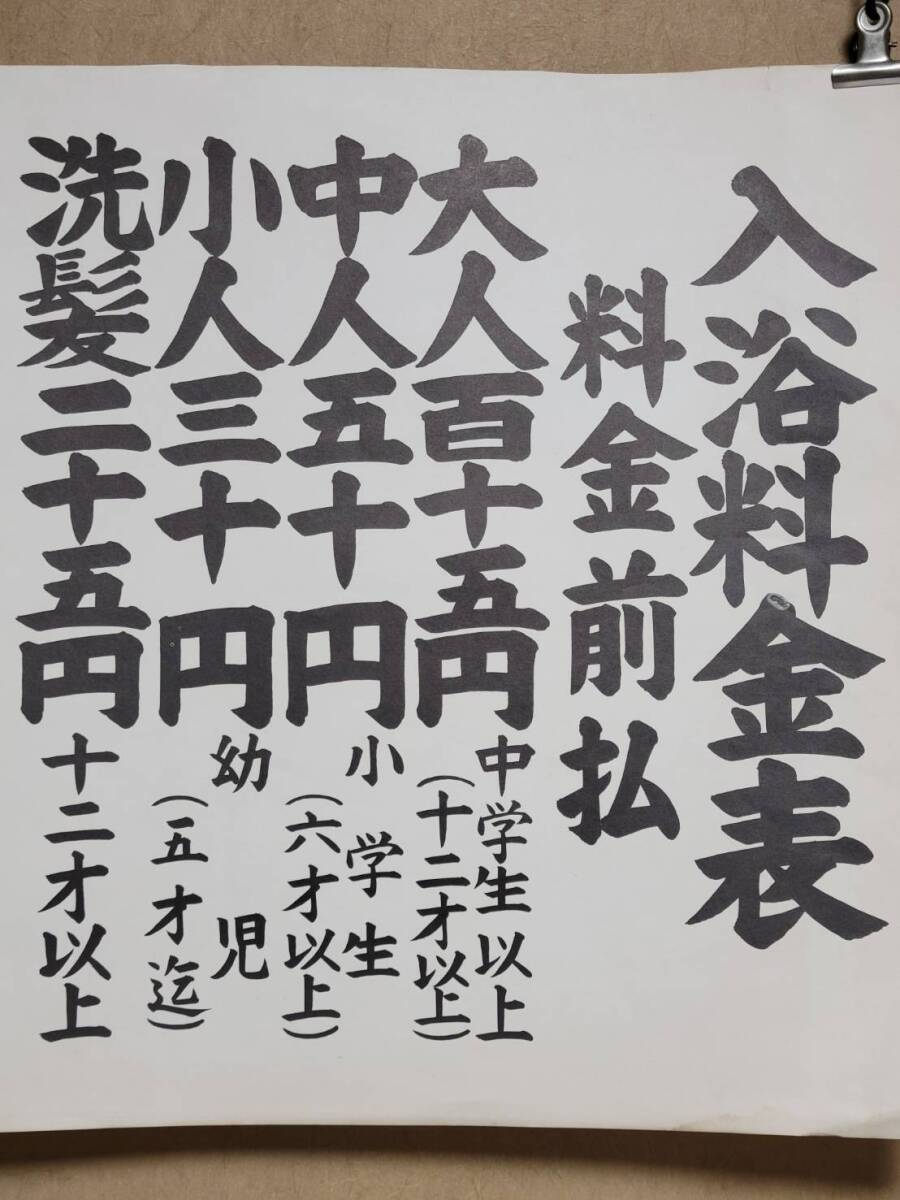 入浴料金表
料金前払
大人百十五円
中学生以上
(十二才以上)
中人五十円
小学生
(六才以上)
小人三十円
幼児
(五才迄)
洗髪二十五円
十二才以上